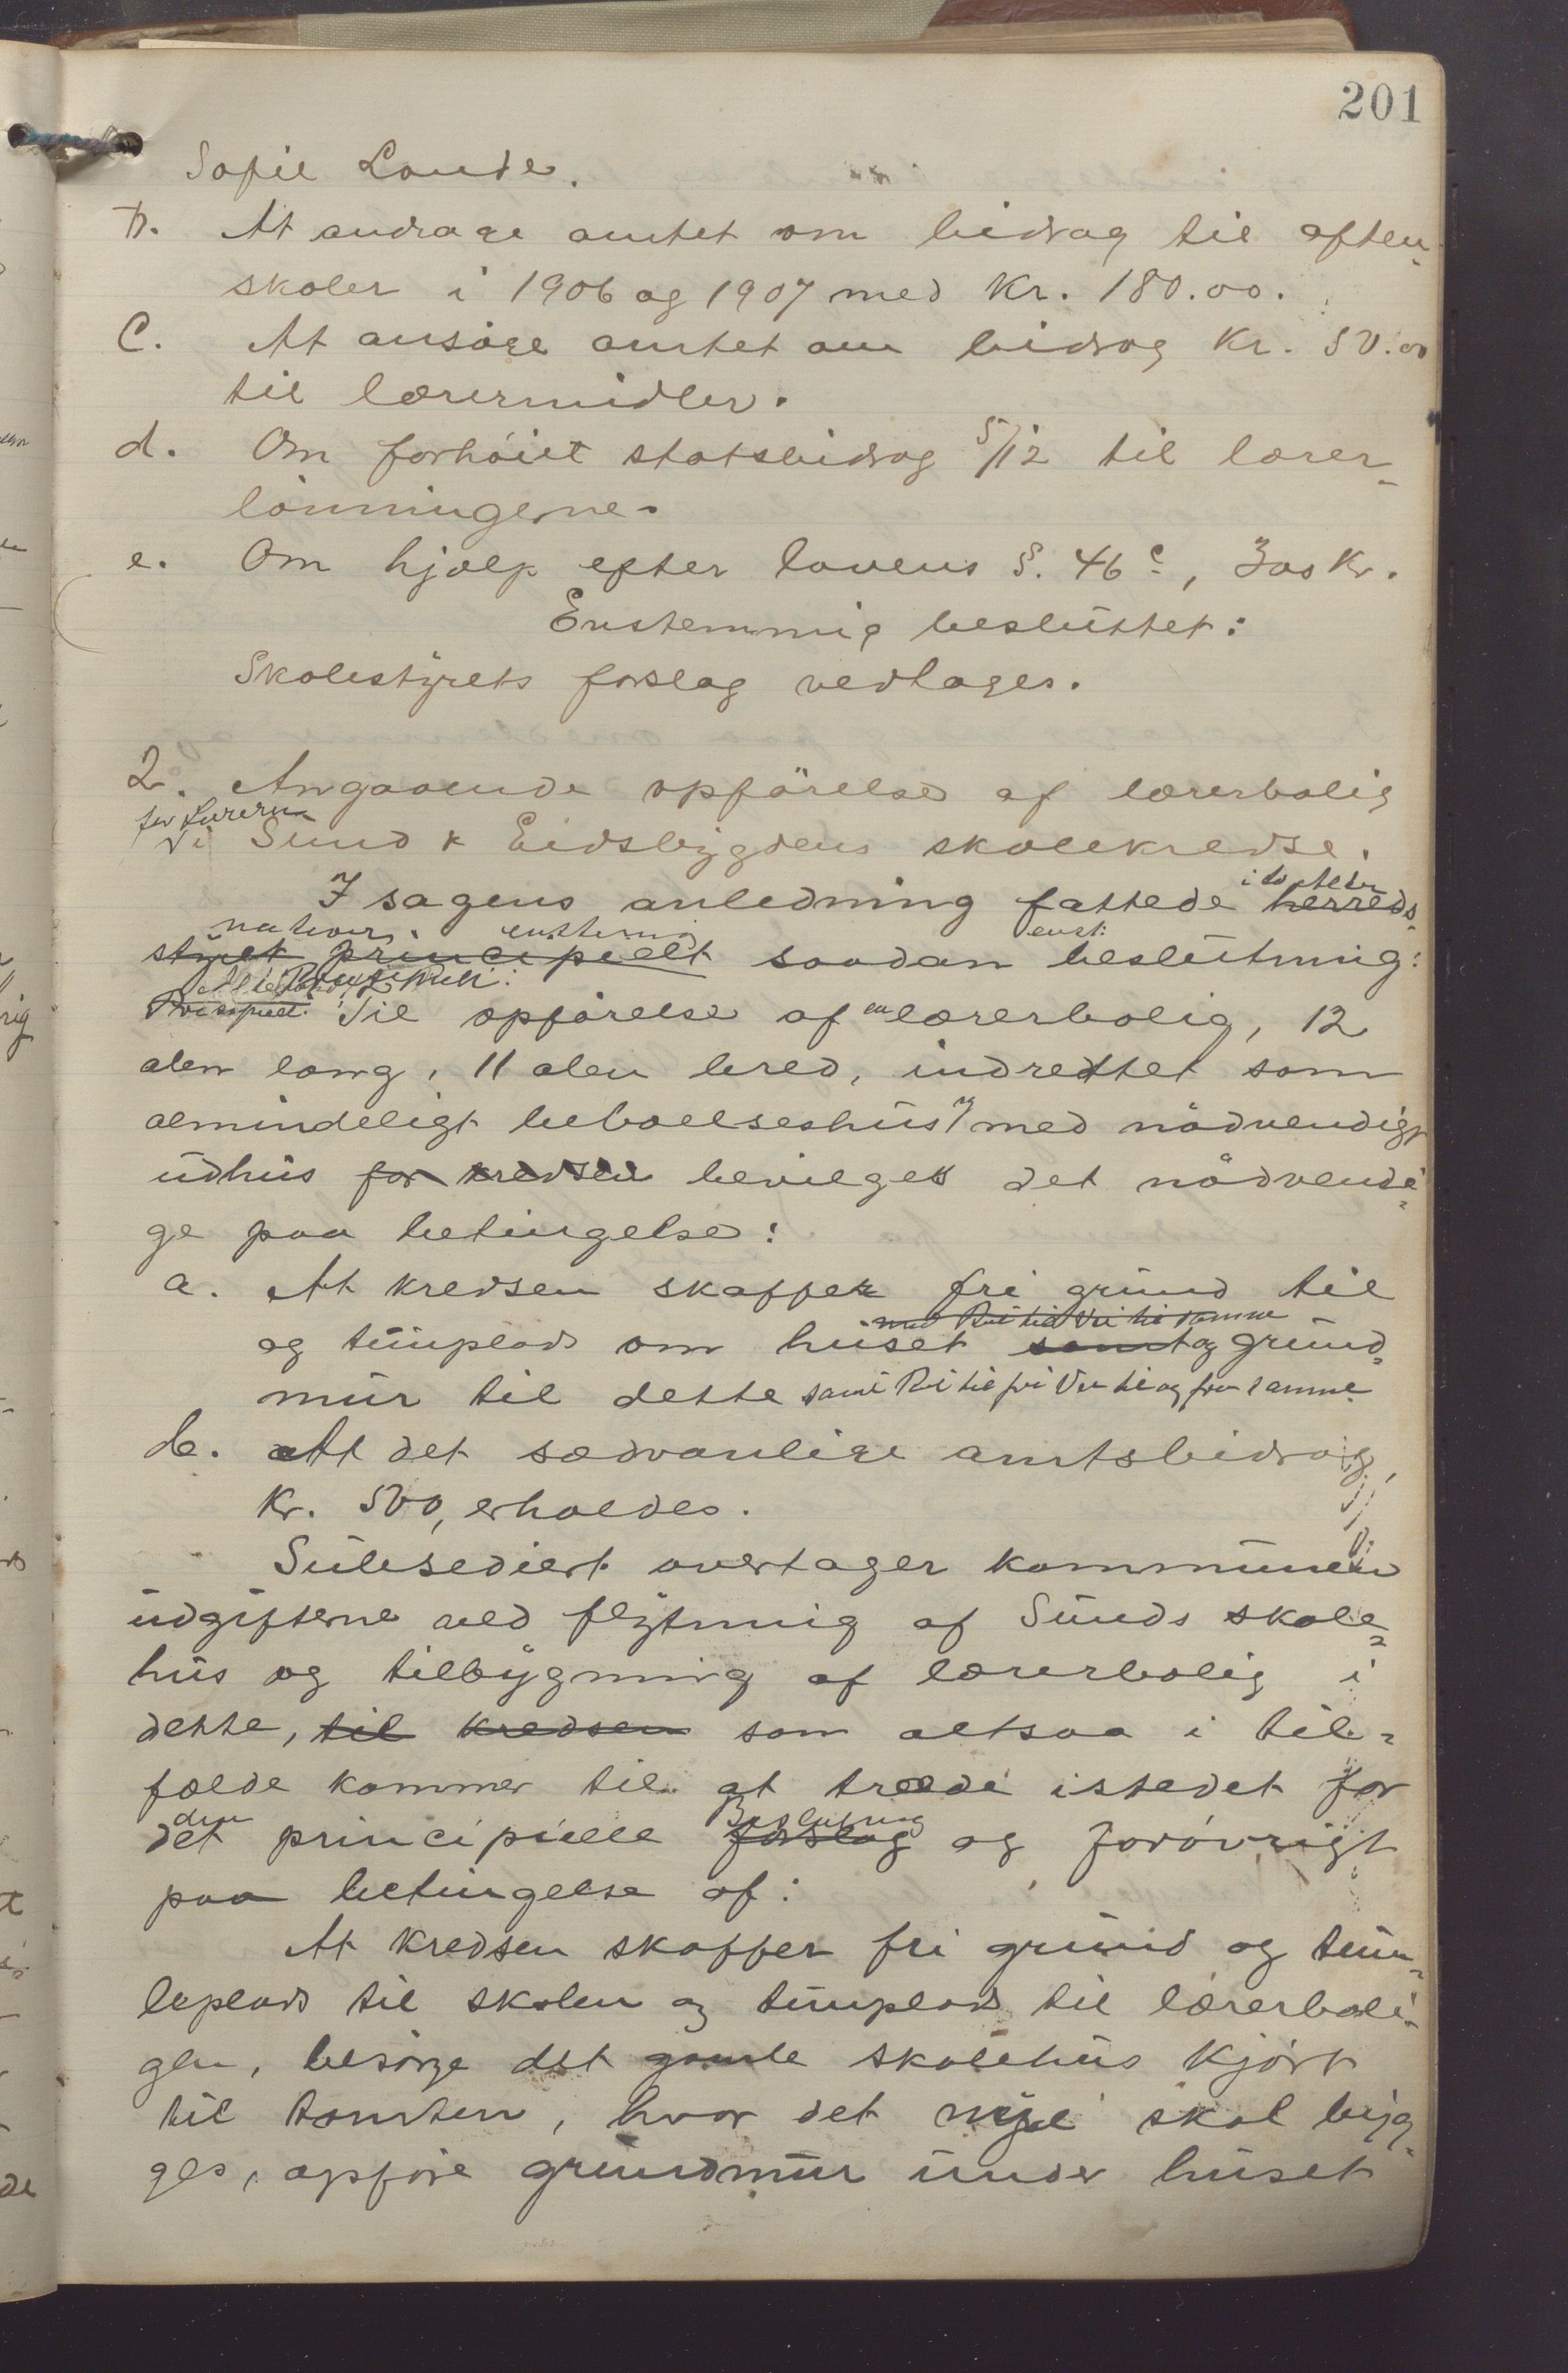 201
Sofie Lande.
b. At andrage amtet om bidrag til aften-
skoler i 1906 og 1907 med Kr. 180.00.
C. At ansöge amtet om bidrag Kr. 50.00
til lærermidler.
d. Om forhöiet statsbidrag 5/12 til lærer-
lönningerne.
e. Om hjælp efter lovens §. 46 c, 300 Kr.
Enstemmig besluttet:
Skolestyrets forslag vedtages.
2. Angaaende opförelse af lærerbolig
for læreren
i Sund & Eidsbygdens skolekredse.
I sagens anledning fattede herreds-
enstemmig enst:
styret principielt saadan beslutning:
Principielt: Til opförelse af en lærerbolig, 12
alen lang, 11 alen bred, indredtet som
almindeligt beboelseshus med nödvendigt
udhus for kredsen bevilges det nödvendi-
ge paa betingelse:
a. At kredsen skaffer fri grund til
og tunplads om huset samt og grund-
mur til dette samt Ret til fri Vei til og fra samme
b. At det sædvanlige amtsbidrag,
Kr. 500, erholdes.
Subsediert overtager kommunen
udgifterne ved flytning af Sunds skole-
hus og tilbygning af lærerbolig i
dette, til kredsen som altsaa i til-
fælde kommer til at træde istedet for
den Beslutning
det principielle forslag og forövrigt
paa betingelse af:
At kredsen skaffer fri grund og tum-
leplads til skolen og tunplads til lærerboli-
gen, besörge det gamle skolehus kjört
til tomten, hvor det nye skal byg-
ges, opföre grundmur under huset